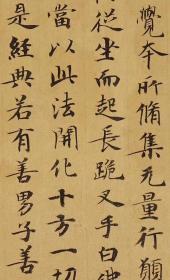 覺本所脩集无量行願
従坐而起長跪叉手白佛
當以此法開化十方一切
是經典若有善男子善